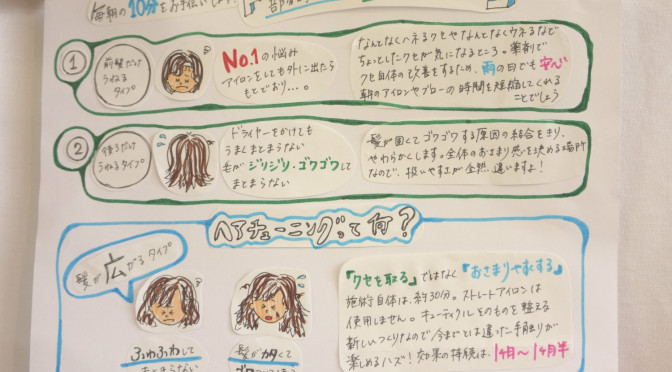 毎朝の10分をお手伝い
①
前髪だけ
うねる
タイプ
No.1の悩み
アイロンをしても外に出たら
もとどおり…。
なんとなくハネるクセやなんとなくウネるなど
ちょっとしたクセが気になるところ。薬剤で
クセ自体の改善をするため、雨の日でも安心
朝のアイロンやブローの時間を短縮してくれる
ことでしょう
②
後ろだけ
うねるタイプ
ドライヤーをかけても
うまくまとまらない
毛がジリジリ・ゴワゴワして
まとまらない
髪が固くてゴワゴワする原因の結合をきり、
やわらかくします。全体のおさまり感を決める場所
なので、扱いやすさが全然違いますよ!
ヘアチューニングって何?
髪が広がるタイプ
ふわふわして
まとまらない
髪がかたくて
「クセを取る」ではなく「おさまりやすくする」
施術自体は約30分。ストレートアイロンは
使用しません。キューティクルそのものを整える
新しいつくりなので今までとは違った手触りが
楽しめるハズ!効果の持続は、1ヶ月〜1ヶ月半